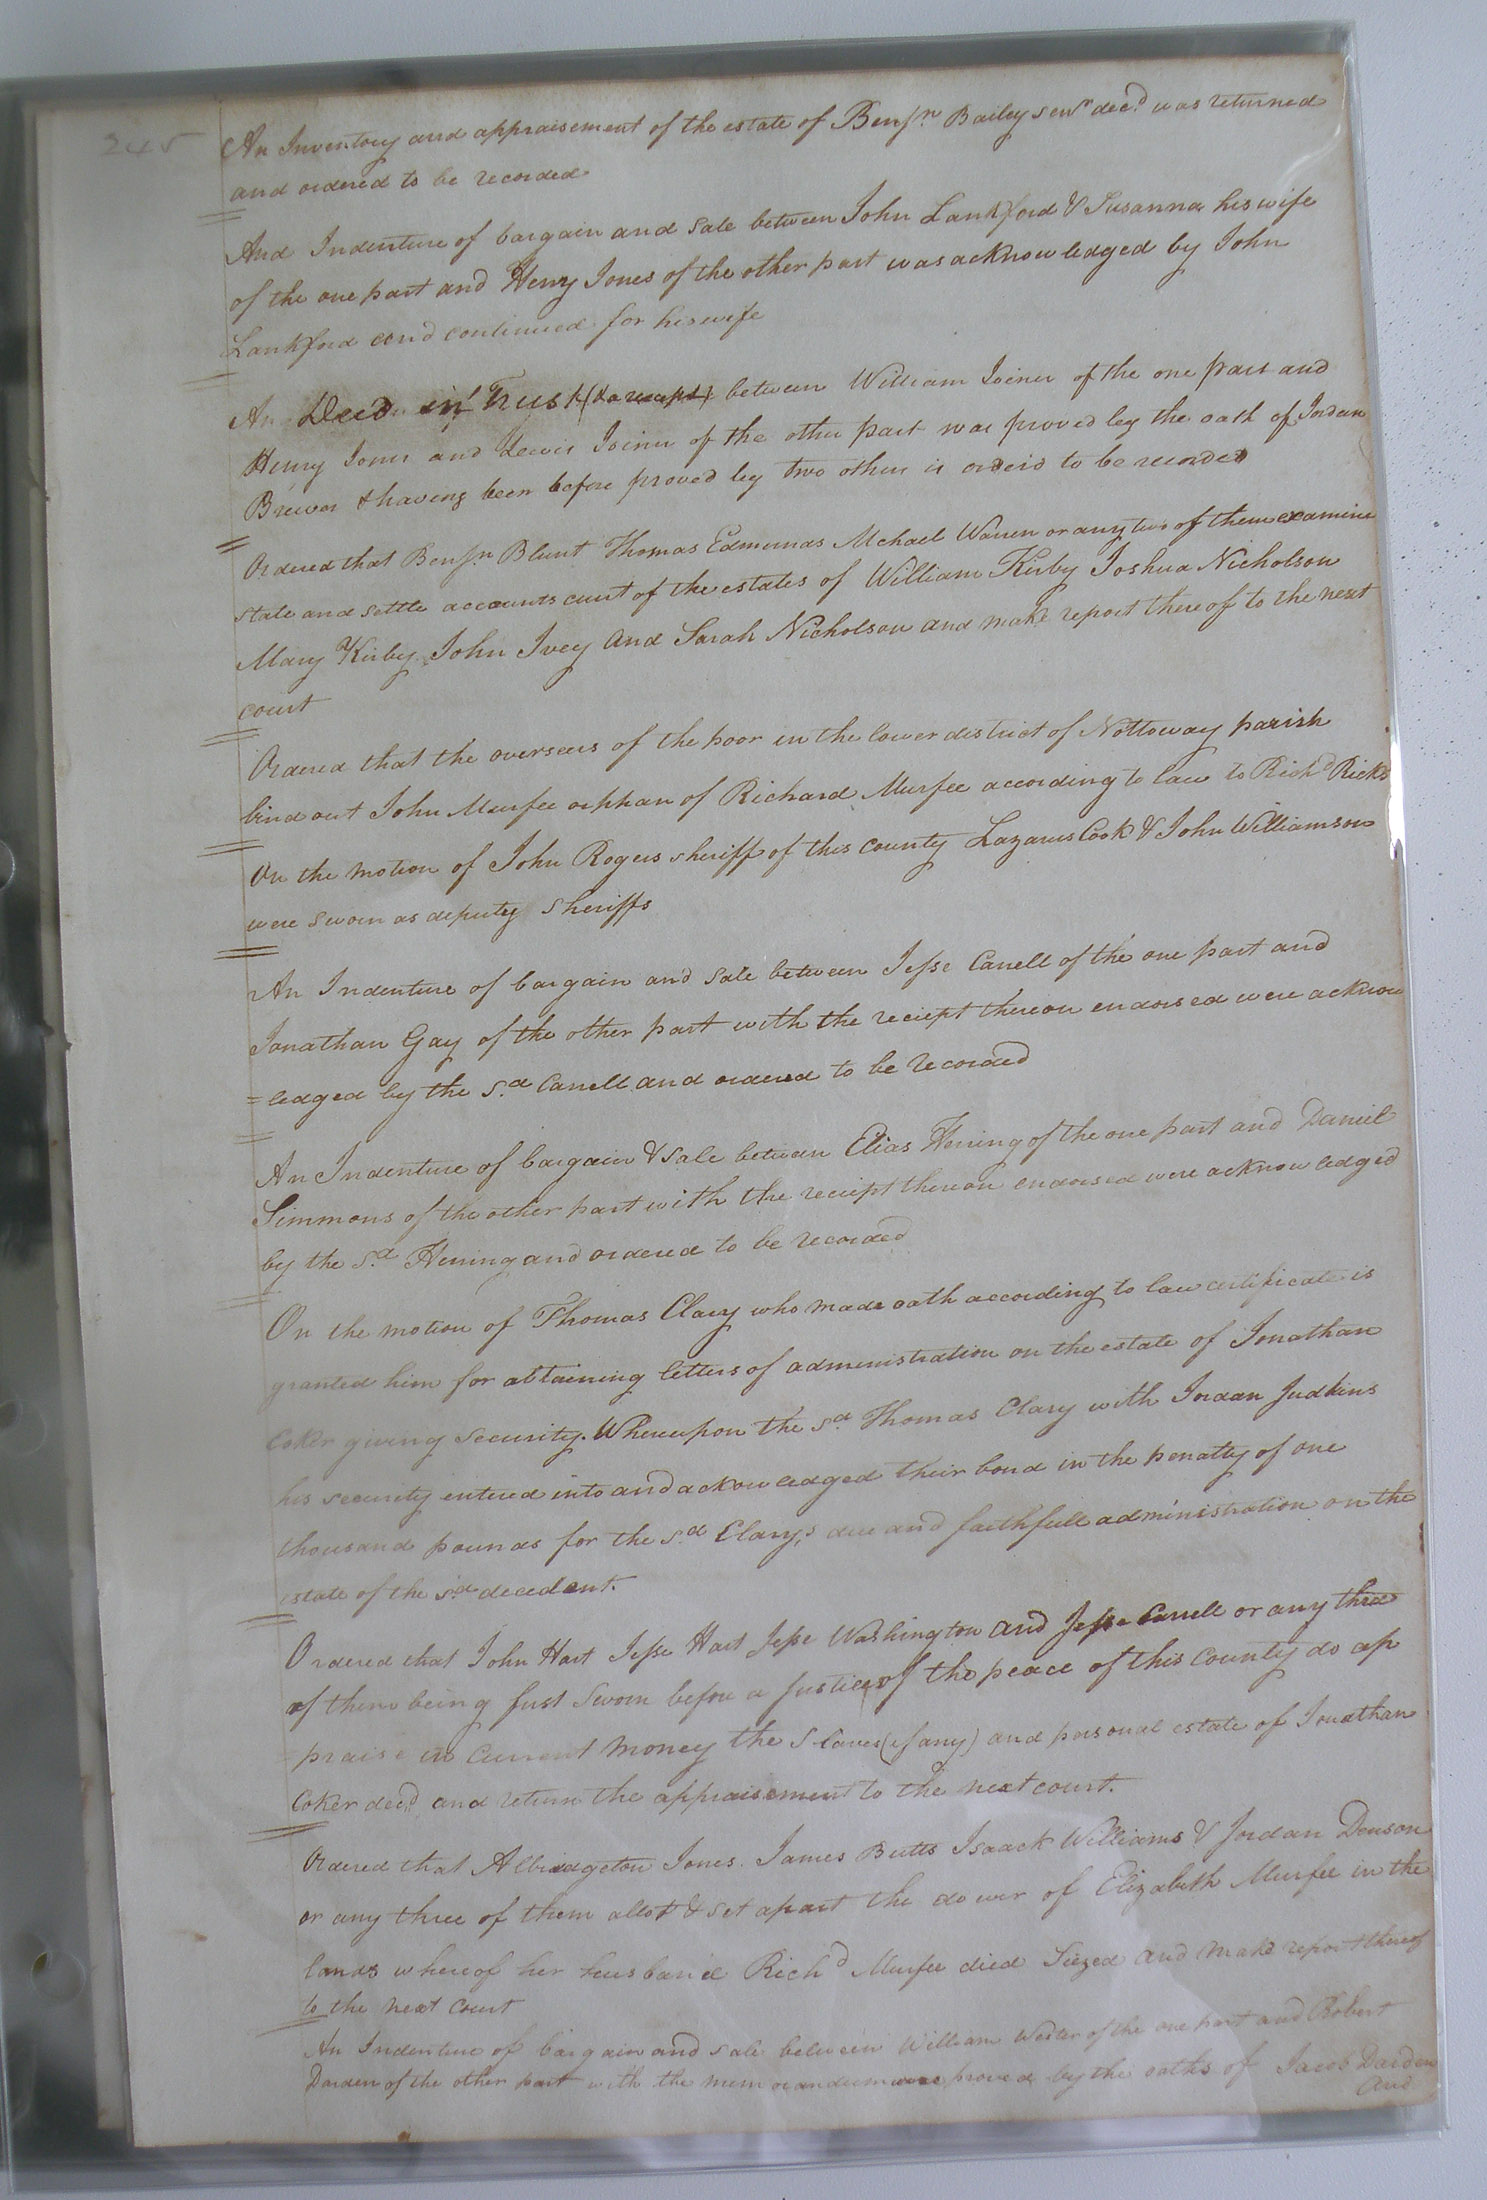 245
An Inventory and appraisement of the estate of Benjn Bailey senr decd was returned
and ordered to be recorded
And Indenture of bargain and sale between John Lankford & Susanna his wife
of the one part and Henry Jones of the other part was acknowledged by John
Lankford and continued for his wife
An Deed in Trust (& a receipt) between William Joiner of the one part and
Henry Jones and Lewis Joiner of the other part was proved by the oath of Jordan
Brewer & having been before proved by two others is orderd to be recorded
Ordered that Benjn Blunt Thomas Edmunds Mchael Warren or any two of them examine
state and settle accounts curt of the estates of William Kirby Joshua Nicholson
Mary Kirby John Ivey and Sarah Nicholson and make report thereof to the next
court
Ordered that the overseers of the poor in the lower district of Nottoway parish
bind out John Murfee orphan of Richard Murfee according to law to Richd Ricks
On the motion of John Rogers sheriff of this county Lazarus Cook & John Williamson
were sworn as deputy sheriffs
An Indenture of bargain and sale between Jesse Carrell of the one part and
Jonathan Gay of the other part with the reciept thereon endorsed were acknow
=ledged by the sd Carrell and ordered to be recorded
An Indenture of bargain & sale between Elias Herring of the one part and Daniel
Simmons of the other part with the reciept thereon endorsed were acknowledged
by the sd Herring and ordered to be recorded
On the motion of Thomas Clary who made oath according to law certificate is
granted him for obtaining letters of administration on the estate of Jonathan
Coker giving security. Whereupon the sd Thomas Clary with Jordan Judkins
his security entered into and acknowledged their bond in the penalty of one
thousand pounds for the sd Clary's due and faithfull administration on the
estate of the sd decedent.
Ordered that John Hart Jesse Hart Jesse Washington and Jesse Carrell or any three
of them being first sworn before a Justice of the peace of this County do ap
=praise in Current money the Slaves (if any) and personal estate of Jonathan
Coker decd and return the appraisement to the next court.
Ordered that Albridgeton Jones James Butts Isaack Williams & Jordan Denson
or any three of them allot & set apart the dower of Elizabeth Murfee in the
lands whereof her husband Richd Murfee died Siezed and make report thereof
to the next court
An Indenture of bargain and sale between William Wester of the one part and Robert
Darden of the other part with the memorandum were proved by the oaths of Jacob Darden
and